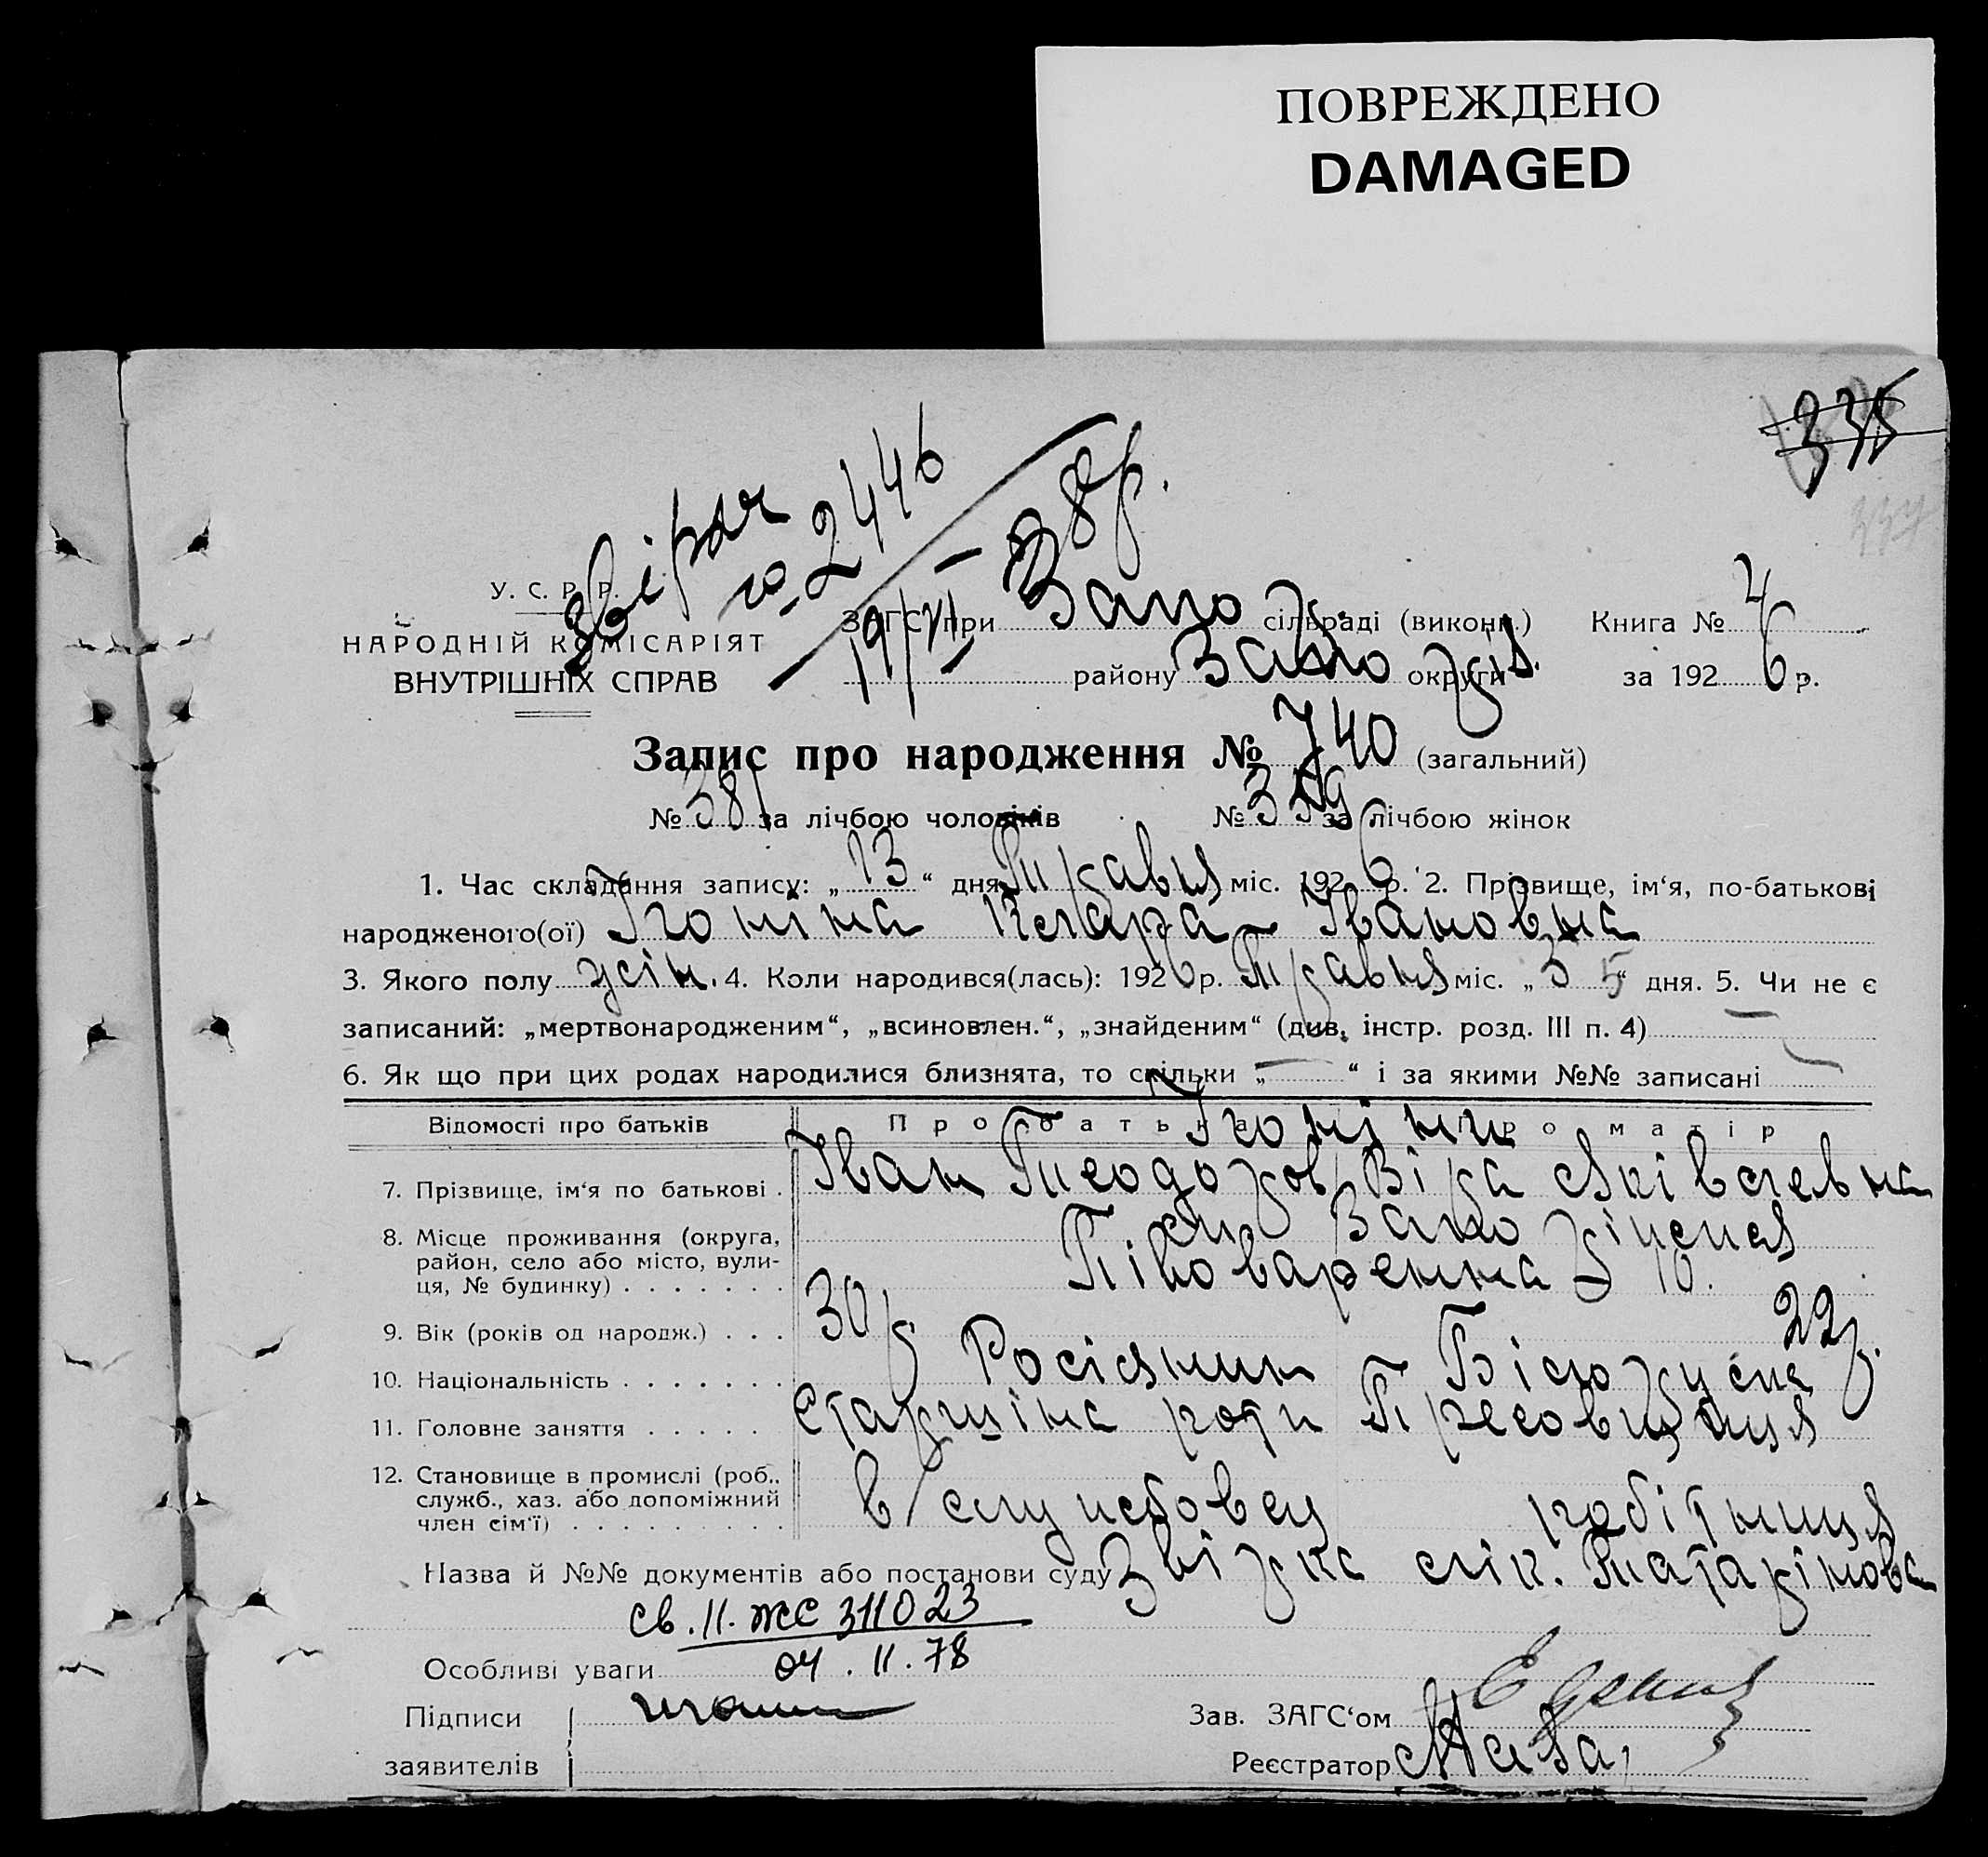 ПОВРЕЖДЕНО
DAMAGED
335
337
звірял
№ 2446
19/VII – 38р.
У. С. Р. Р.
НАРОДНІЙ КОМІСАРІЯТ
ВНУТРІШНІХ СПРАВ
ЗАГС при Запор. сільраді (викон.) Книга № 4
району Запоріз. округи за 1926 р.
Запис про народження № 740 (загальний)
№ 381 за лічбою чоловіків № 359 за лічбою жінок
1. Час складання запису: „13“ дня Травня міс. 1926 р. 2. Прізвище, ім‘я, по-батькові
народженого(ої) Ігоніна Клара Івановна
3. Якого полу жін. 4. Коли народився(лась): 1926 р. Травня міс. „5“ дня. 5. Чи не є
записаний: „мертвонародженим“, „всиновлен.“, „знайденим“ (див. інстр. розд. III п. 4) —
6. Як що при цих родах народилися близнята, то скільки „—“ і за якими №№ записані —
Відомості про батьків Про батька Про матір
Ігоніни
7. Прізвище, ім‘я по батькові . Іван Теодоров Віра Яківлевна
8. Місце проживання (округа,
район, село або місто, вули-
ця, № будинку) . . . . . . . Запоріжжя
Півоваренна 10.
9. Вік (років од народж.) . . . 30 р 22р.
10. Національність . . . . . . . Росіянин Білоруска
11. Головне заняття . . . . . Старшіна роти Пресовщиця
12. Становище в промислі (роб.,
служб., хаз. або допоміжний
член сім‘ї) . . . . . . . . . в/службовец робітниця
Назва й №№ документів або постанови суду Звірка лік. Татарінова
св. II-ЖС 311023
04.11.78
Особливі уваги
Підписи
заявителів
Зав. ЗАГС‘ом
Реєстратор